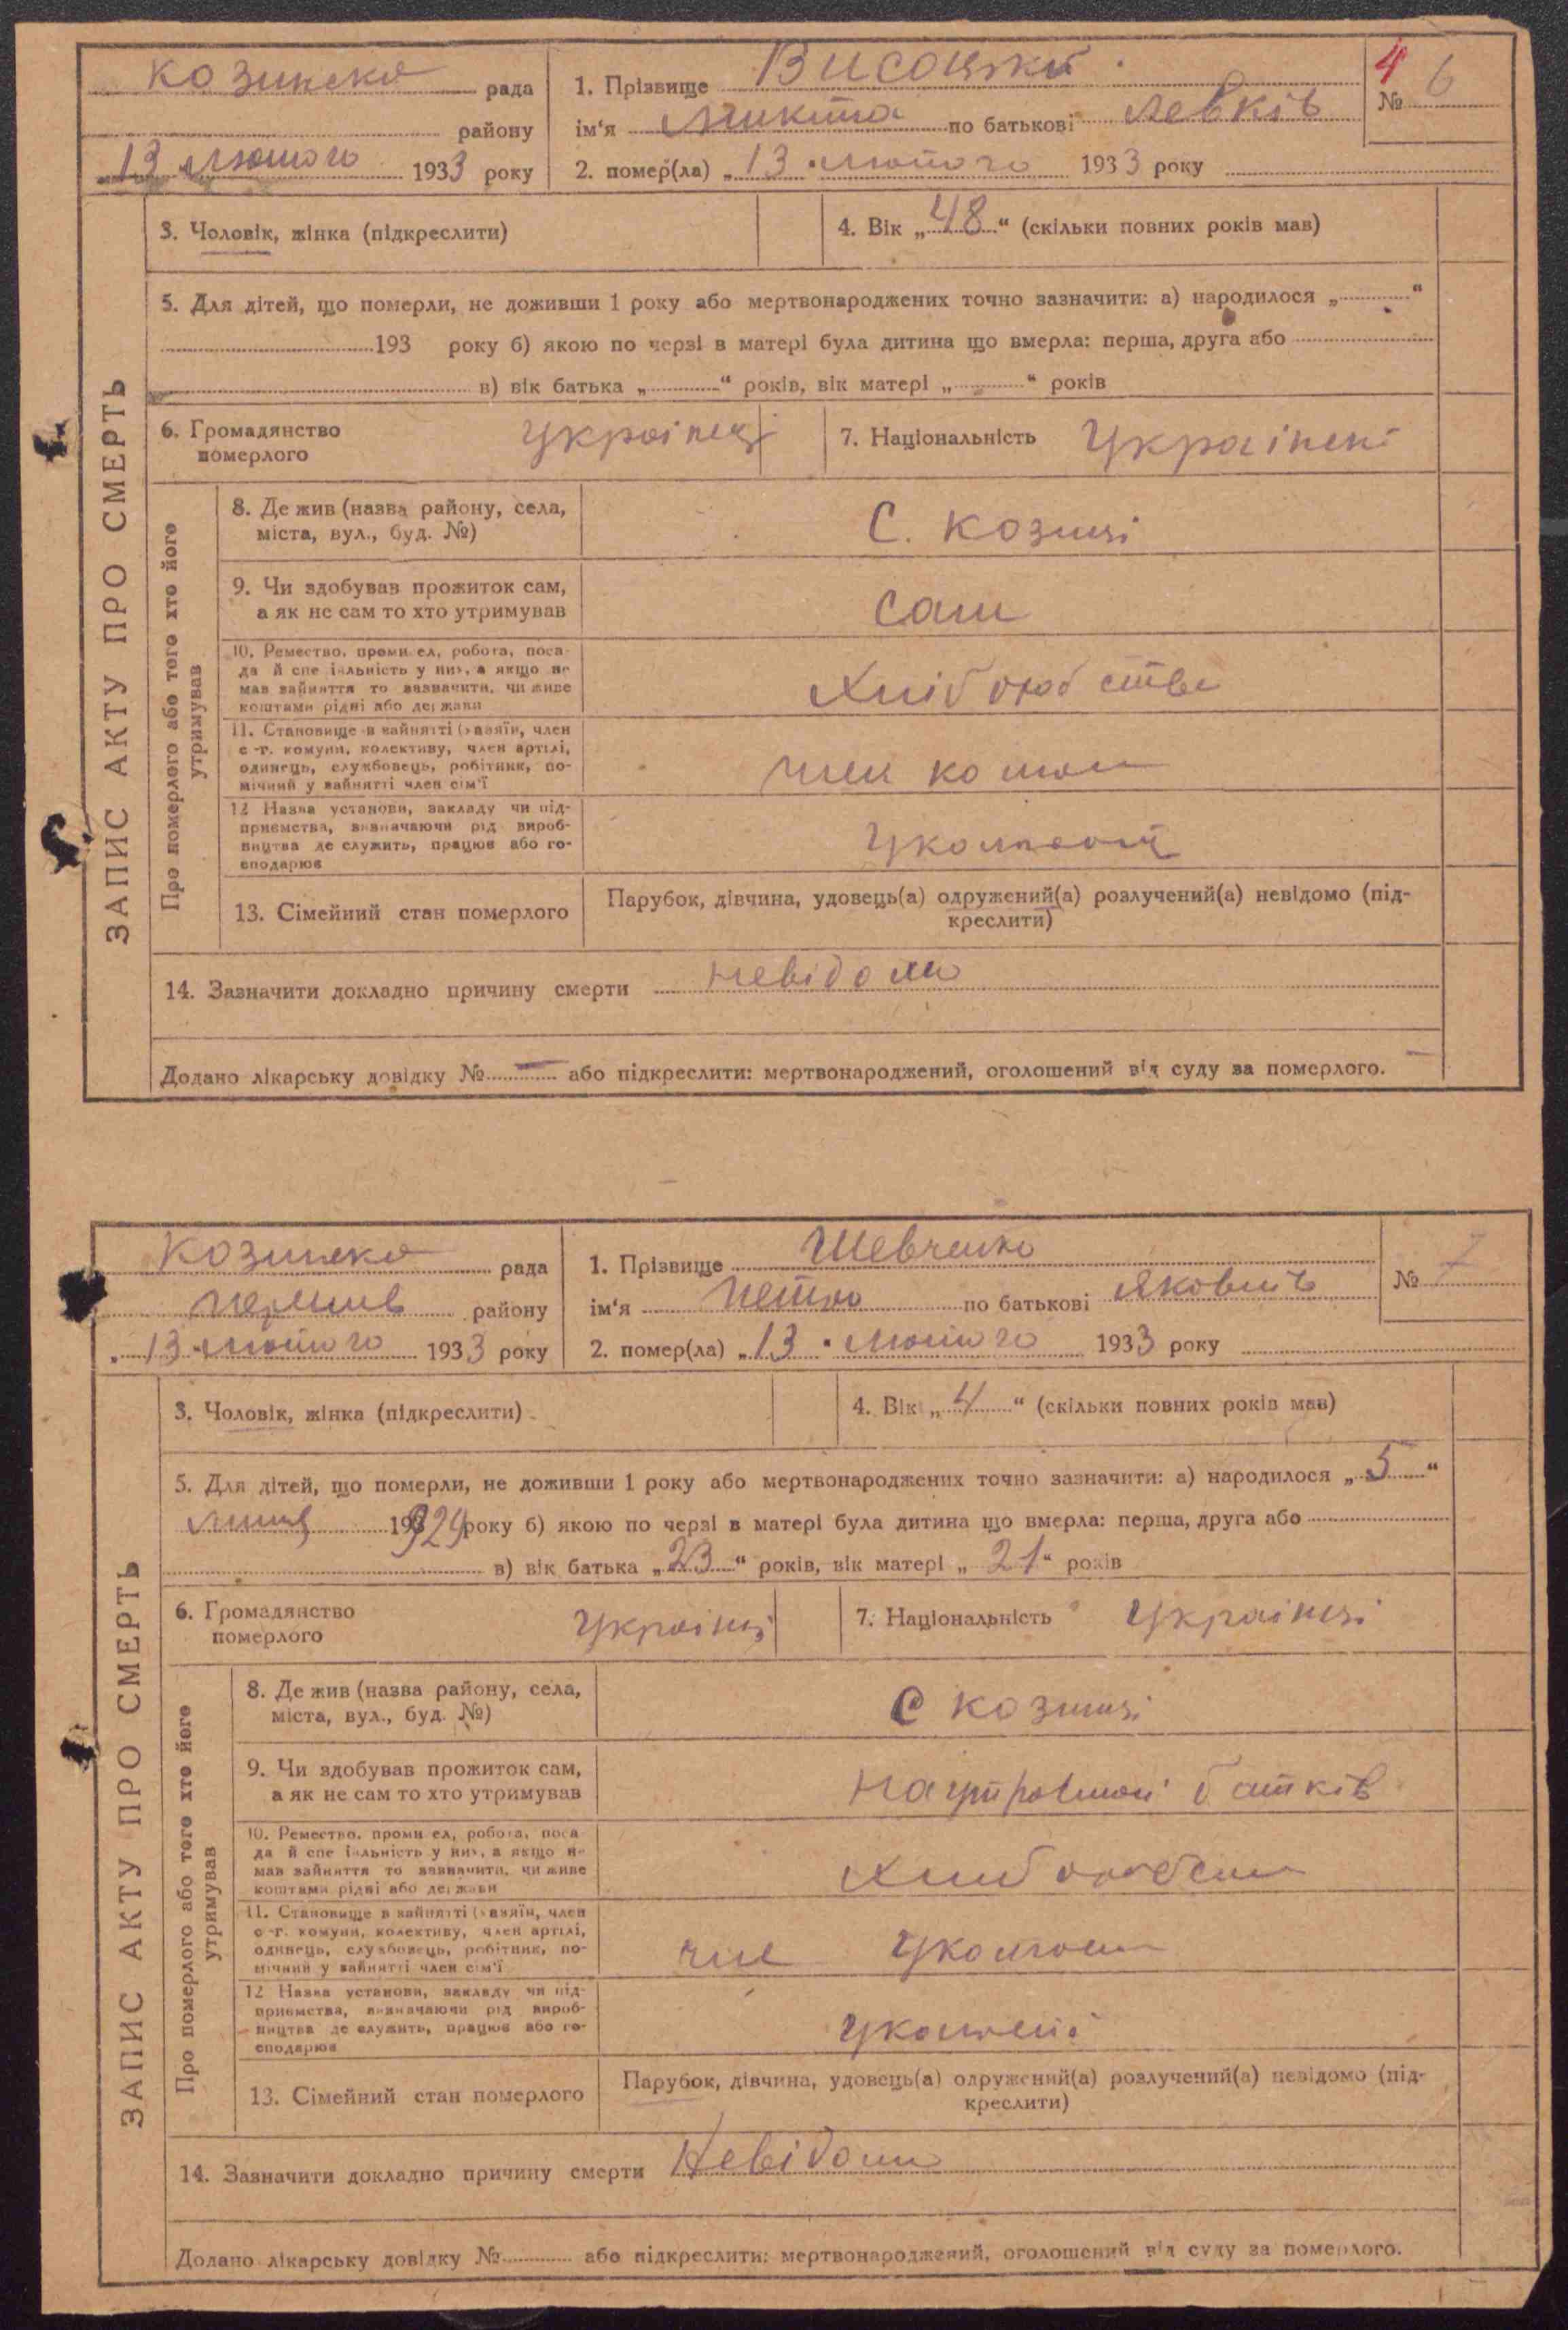 Козинска рада
району
13 лютого 1933 року
1. Прізвище Висоцький
ім‘я Микита по батькові Левків
2. помер(ла) „13 лютого 1933 року
4
№ 6
ЗАПИС АКТУ ПРО СМЕРТЬ
3. Чоловік, жінка (підкреслити)
4. Вік „48“ (скільки повних років мав)
5. Для дітей, що померли, не доживши 1 року або мертвонароджених точно зазначити: а) народилося „ “
193 року б) якою по черзі в матері була дитина що вмерла: перша, друга або
в) вік батька „ “ років, вік матері „ “ років
6. Громадянство
померлого
Украінец
7. Національність
Про померлого або того хто його
утримував
8. Де жив (назва району, села,
міста, вул., буд. №)
С. Козинці
9. Чи здобував прожиток сам,
а як не сам то хто утримував
Сам
10. Ремество, промисел, робота, поса-
да й спеціальність у них, а якщо не
мав зайняття то зазначити, чи живе
коштами рідні або держави
11. Становище в зайнятті (хазяїн, член
с-г. комуни, колективу, член артілі,
одинець, службовець, робітник, по-
мічний у зайнятті член сім‘ї
12 Назва установи, закладу чи під-
приємства, визначаючи рід вироб-
ництва де служить, працює або го-
сподарює
13. Сімейний стан померлого
Парубок, дівчина, удовець(а) одружений(а) розлучений(а) невідомо (під-
креслити)
14. Зазначити докладно причину смерти невідомо
Додано лікарську довідку № — або підкреслити: мертвонароджений, оголошений від суду за померлого.
Козинска рада
району
13 лютого 1933 року
1. Прізвище Шевченко
ім‘я Петро по батькові Якович
2. помер(ла) „13 лютого 1933 року
№ 7
ЗАПИС АКТУ ПРО СМЕРТЬ
3. Чоловік, жінка (підкреслити)
4. Вік „4“ (скільки повних років мав)
5. Для дітей, що померли, не доживши 1 року або мертвонароджених точно зазначити: а) народилося „5“
1929 року б) якою по черзі в матері була дитина що вмерла: перша, друга або
в) вік батька „23“ років, вік матері „21“ років
6. Громадянство
померлого
Украінці
7. Національність Украінці
Про померлого або того хто його
утримував
8. Де жив (назва району, села,
міста, вул., буд. №)
С Козинці
9. Чи здобував прожиток сам,
а як не сам то хто утримував
батків
10. Ремество, промисел, робота, поса-
да й спеціальність у них, а якщо не
мав зайняття то зазначити, чи живе
коштами рідні або держави
11. Становище в зайнятті (хазяїн, член
с-г. комуни, колективу, член артілі,
одинець, службовець, робітник, по-
мічний у зайнятті член сім‘ї
12 Назва установи, закладу чи під-
приємства, визначаючи рід вироб-
ництва де служить, працює або го-
сподарює
13. Сімейний стан померлого
Парубок, дівчина, удовець(а) одружений(а) розлучений(а) невідомо (під-
креслити)
14. Зазначити докладно причину смерти Невідомо
Додано лікарську довідку № або підкреслити: мертвонароджений, оголошений від суду за померлого.